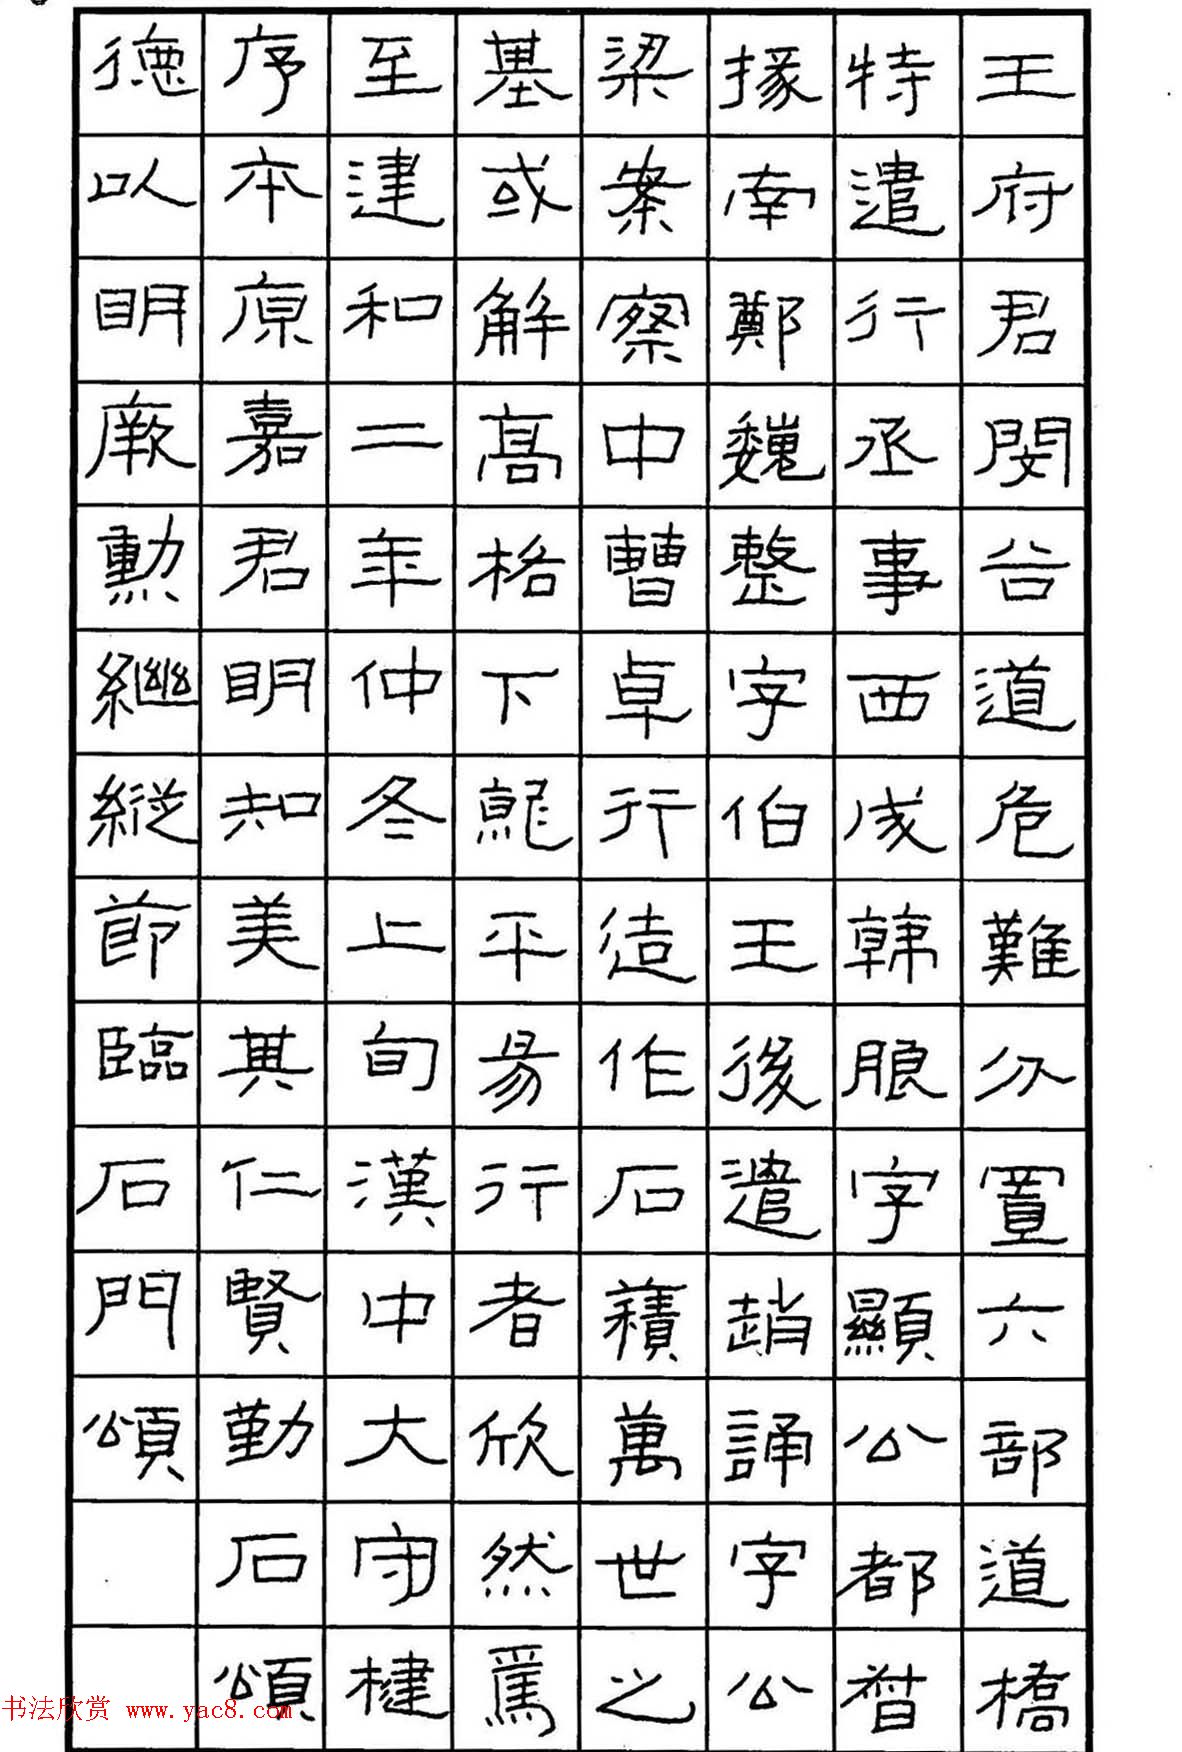 王府君閔谷道危難分置六部道橋
特遣行丞事西成韓朖字顯公都督
掾南鄭魏整字伯王後遣趙誦字公
梁案察中曹卓行造作石積萬世之
基或解高格下就平易行者欣然焉
至建和二年仲冬上旬漢中大守楗
序本原嘉君明知美其仁賢勤石頌
德以明厥勳繼縱節臨石門頌
书法欣赏 www.yac8.com